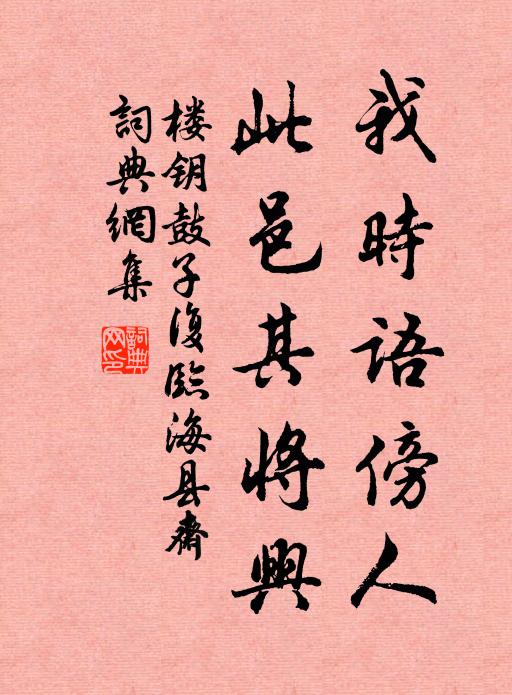 我時語傍人
此邑其將興
楼钥鼓子復臨海县齋
詞典網集
詞典網印